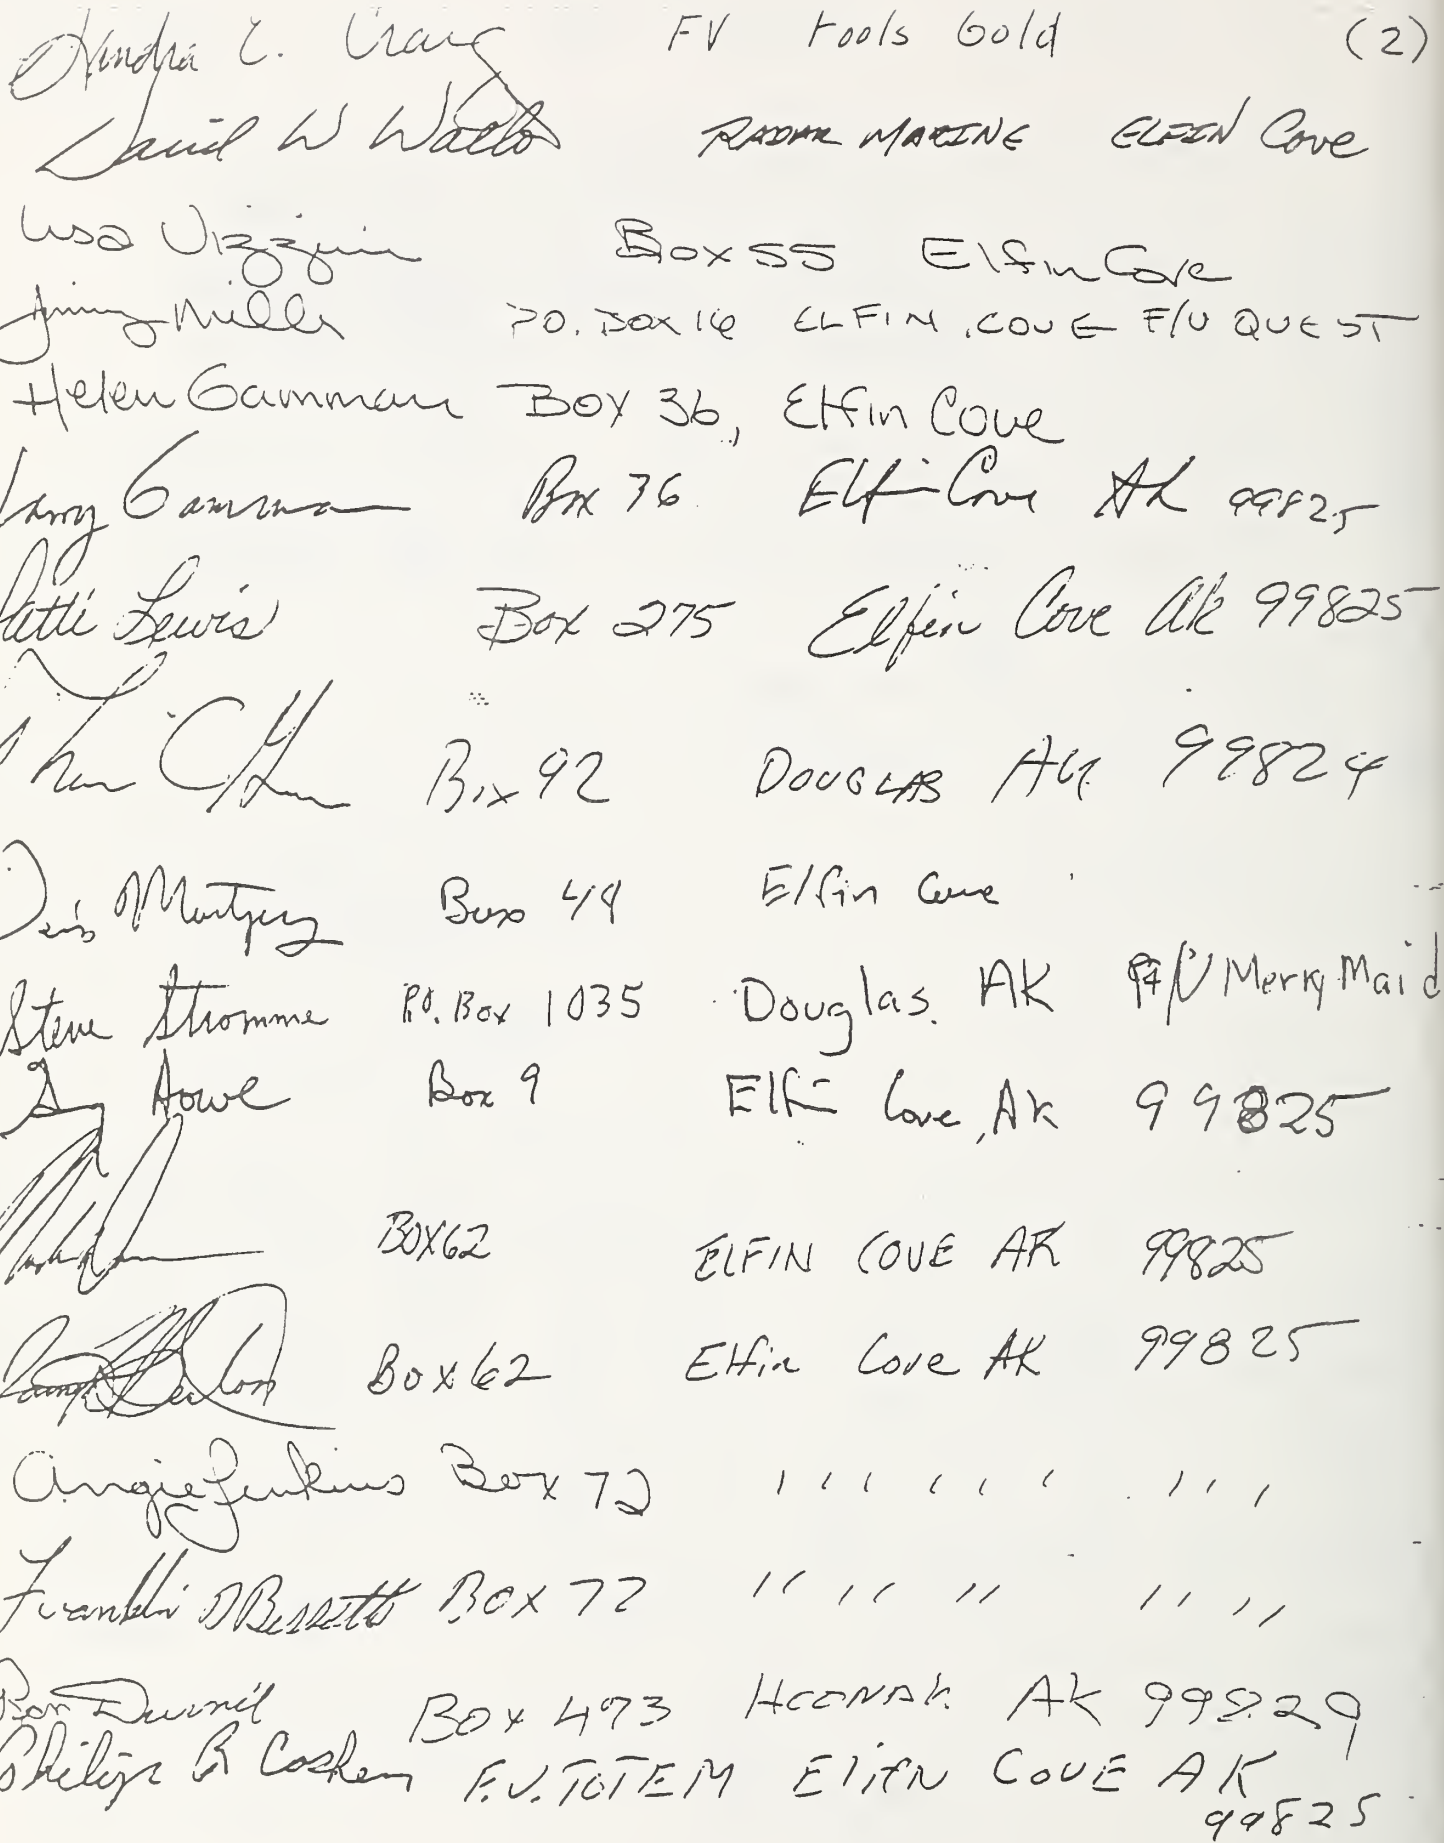 C. Craig FV Fools Gold (2)
David W RADAR MARINE ELFIN Cove
Lisa Vizzini Box 55 Elfin Cove
Jimmy Mills P.O. Box 16 ELFIN COVE F/V QUEST
Helen Gamman Box 36, Elfin Cove
Larry Gamman Box 36 Elfin Cove Ak 99825
Patti Lewis Box 275 Elfin Cove Ak 99825
Box 92 DOUGLAS AK 99824
Box 44 Elfin Cove
Steve Stromme P.O. Box 1035 Douglas, AK F/V Merry Maid
Howe Box 9 Elfin Cove, Ak 99825
BOX 62 ELFIN COVE AK 99825
Box 62 Elfin Cove AK 99825
Angie Jenkins Box 72 ' ' ' ' ' ' ' ' '
Franklin D Bessette Box 72 '' '' '' '' ''
Ron Durnil Box 473 HOONAH AK 99829
Philip R F.V. TOTEM Elifn COVE AK
99825